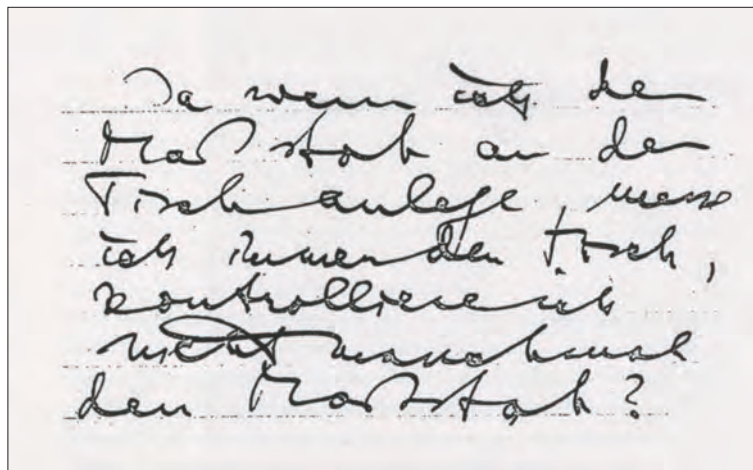 Ja wenn ich den
Maßstab an den
Tisch anlege, messe
ich immer den Tisch,
kontrolliere ich
nicht manchmal
den Maßstab?